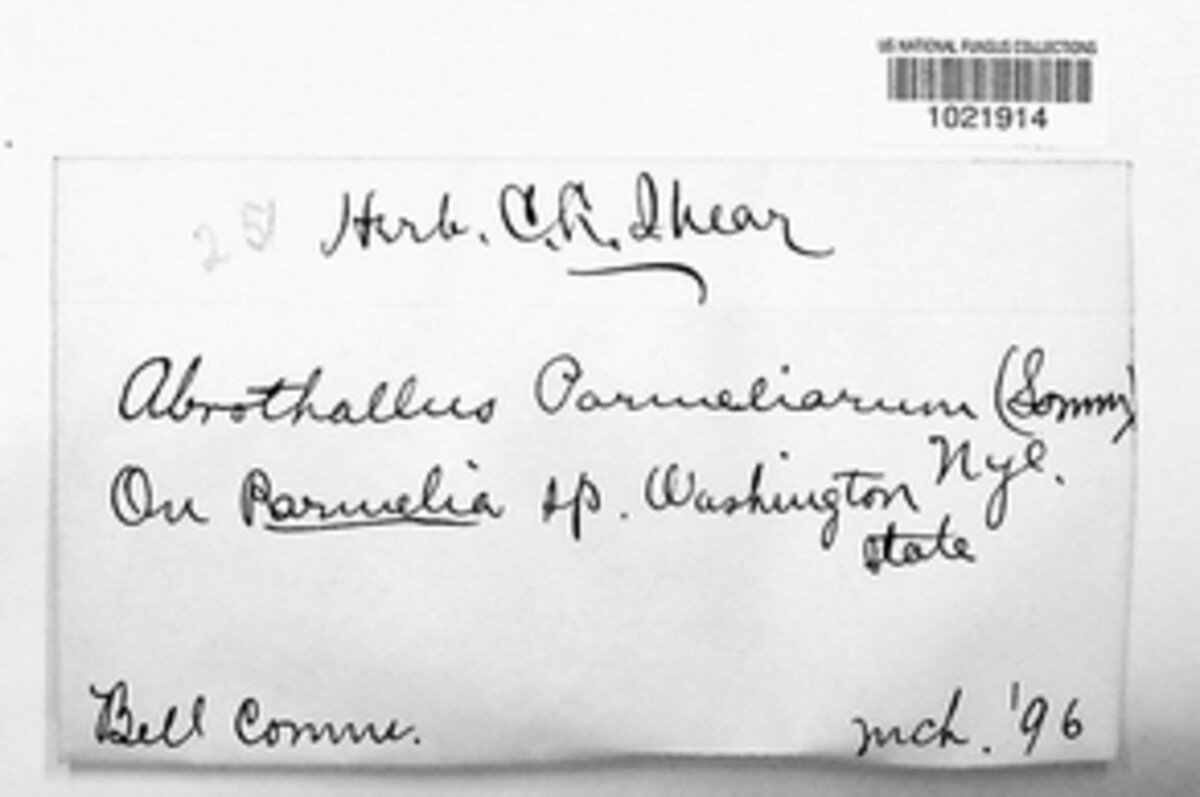 US NATIONAL FUNGUS COLLECTIONS
1021914
Herb. C. L. Shear
Abrothallus Parmeliarum (Somm)
Nyl.
On Parmelia sp. Washington
state
Bell Comm.
Mch. '96